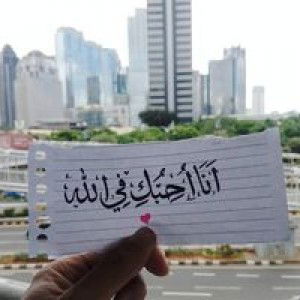 أَنَا أُحِبُّكِ فِي الله